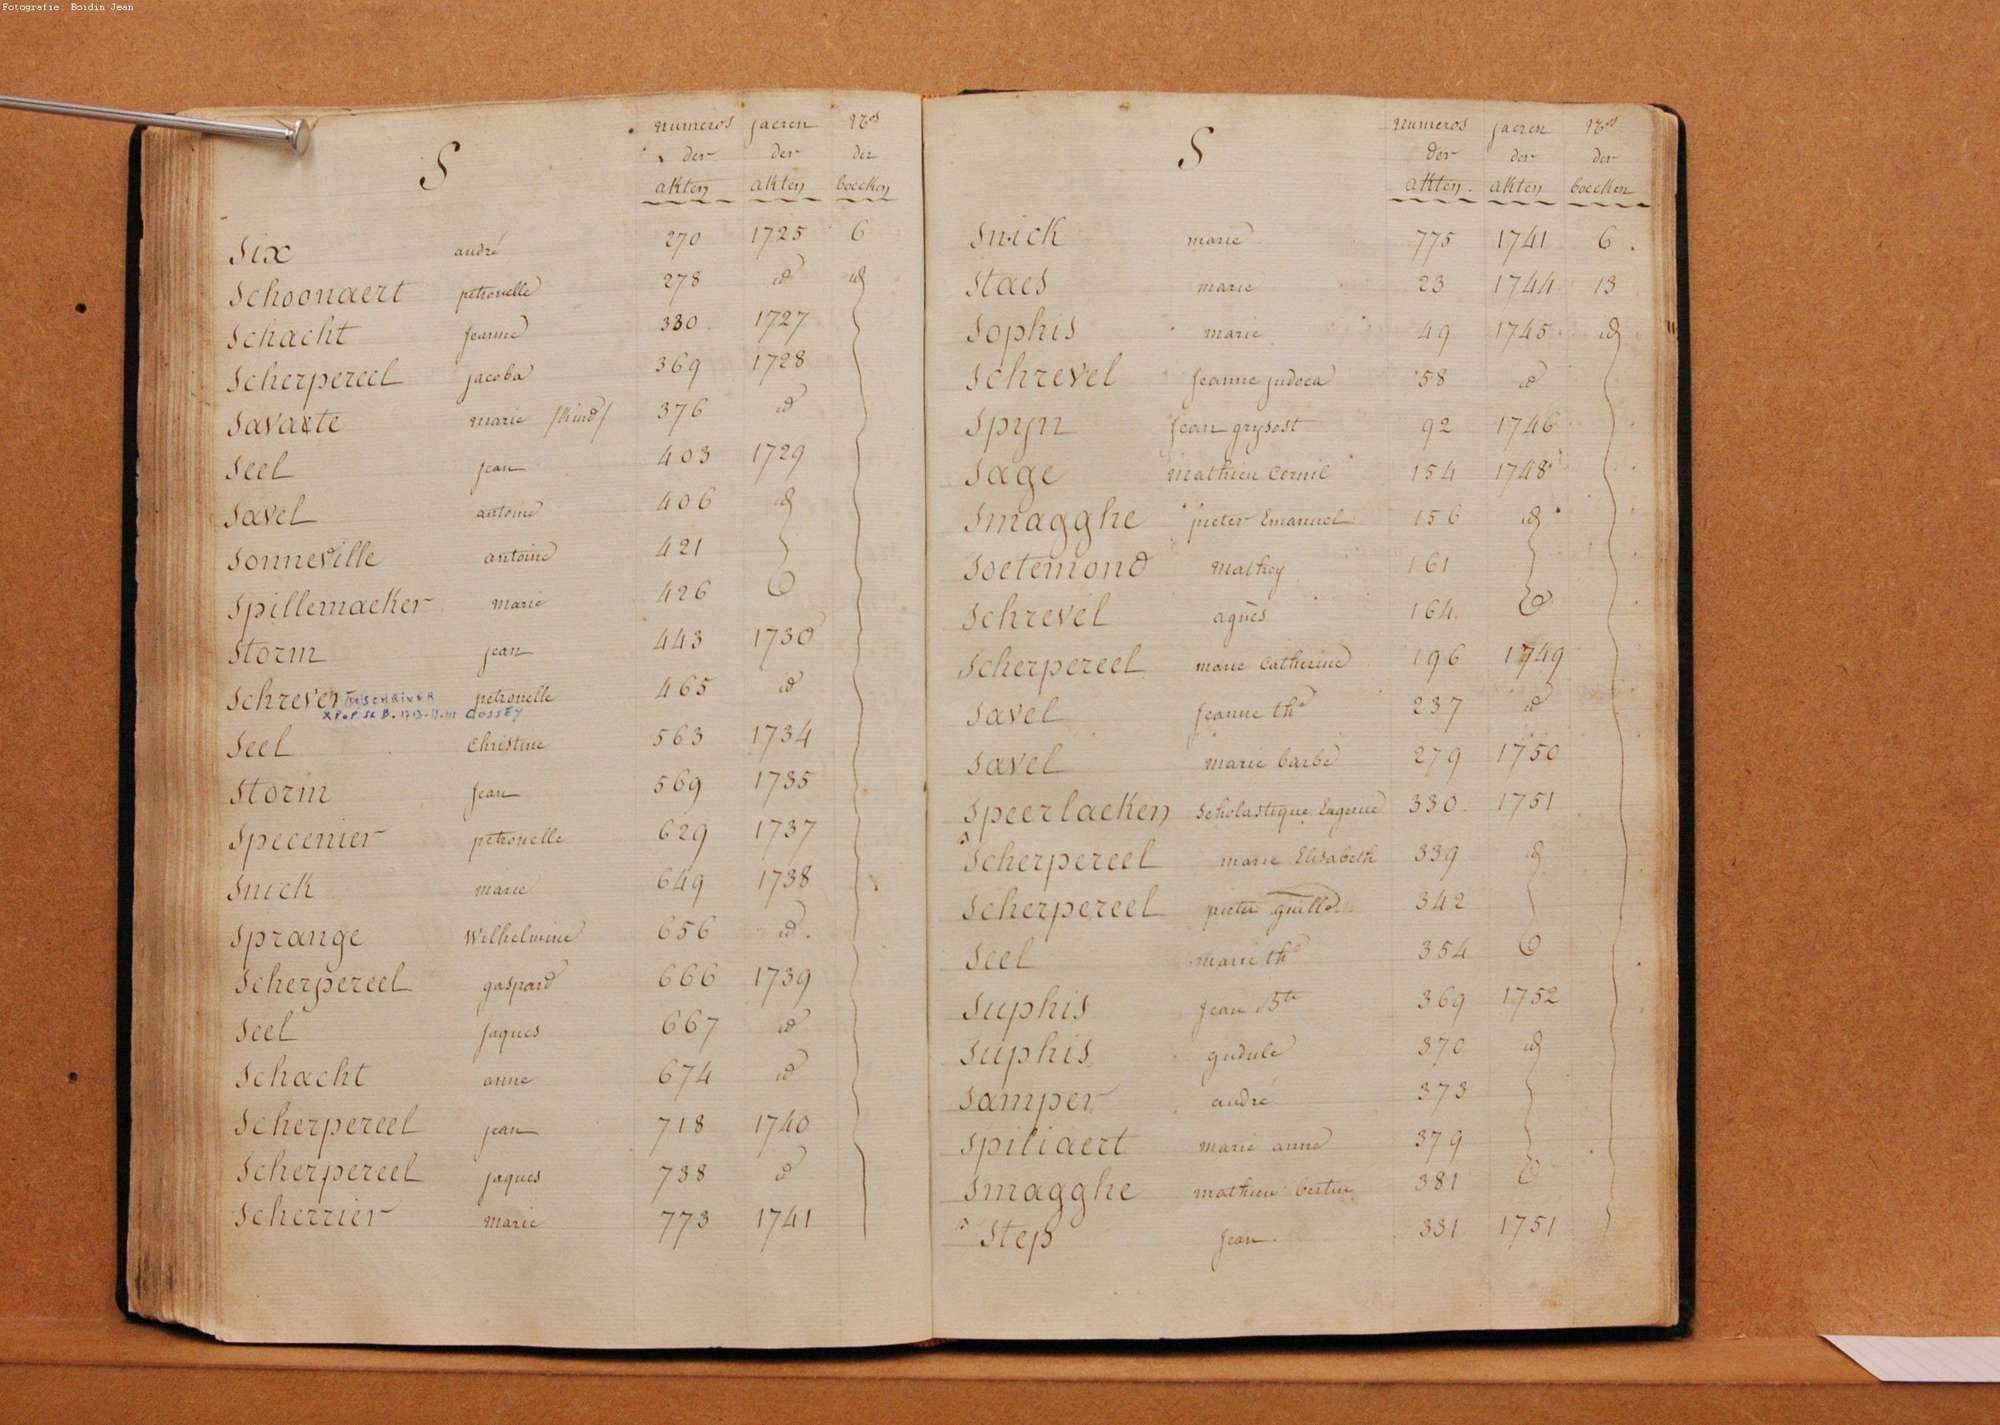 Fotografie: Boidin Jean
S
numeros jaeren Nos
der der der
akten akten boecken
Six andré 270 1725 6
Schoonaert petronelle 278 id id
Schacht Jeanne 330. 1727
Scherpereel jacoba 369 1728
Savaete marie /kind/ 376 id
Seel jean 403 1729
Savel antoine 406 id
Sonneville antoine 421
Spillemaeker marie 426
Storm jean 443 1730
Schrever petronelle 465 id
SCHRIVER
COSSEY
Seel Christine 563 1734
Storm Jean 569 1735
Specenier petronelle 629 1737
Snick marie 649 1738
Sprange Wilhelmine 656 id.
Scherpereel gaspard 666 1739
Seel Jaques 667 id
Schacht anne 674 id
Scherpereel jean 718 1740
Scherpereel jaques 738 id
Scherrier marie 773 1741
S
numeros jaeren Nos
der der der
akten. akten boecken
Snick marie 775 1741 6.
Staes marie 23 1744 13
Sophis marie 49 1745 id
Schrevel Jeanne judoca 58 id
Spyn Jean grysost 92 1746
Sage Mathieu Cornil 154 1748
Smagghe pieter Emanuel 156 id
Soetemond Mathey 161
Schrevel agnès 164
Scherpereel marie Catherine 196 1749
Savel Jeanne the 237 id
Savel marie barbe 279 1750
Speerlaeken Scholastique Eugenie 330. 1751
Scherpereel marie Elisabeth 339 id
Scherpereel pieter guille 342
Seel marie the 354
Suphis Jean Bte 369 1752
Suphis gudule 370 id
Samper andré 373
Spiliaert marie anne 379
Smagghe mathieu bertin 381
Step Jean 331 1751